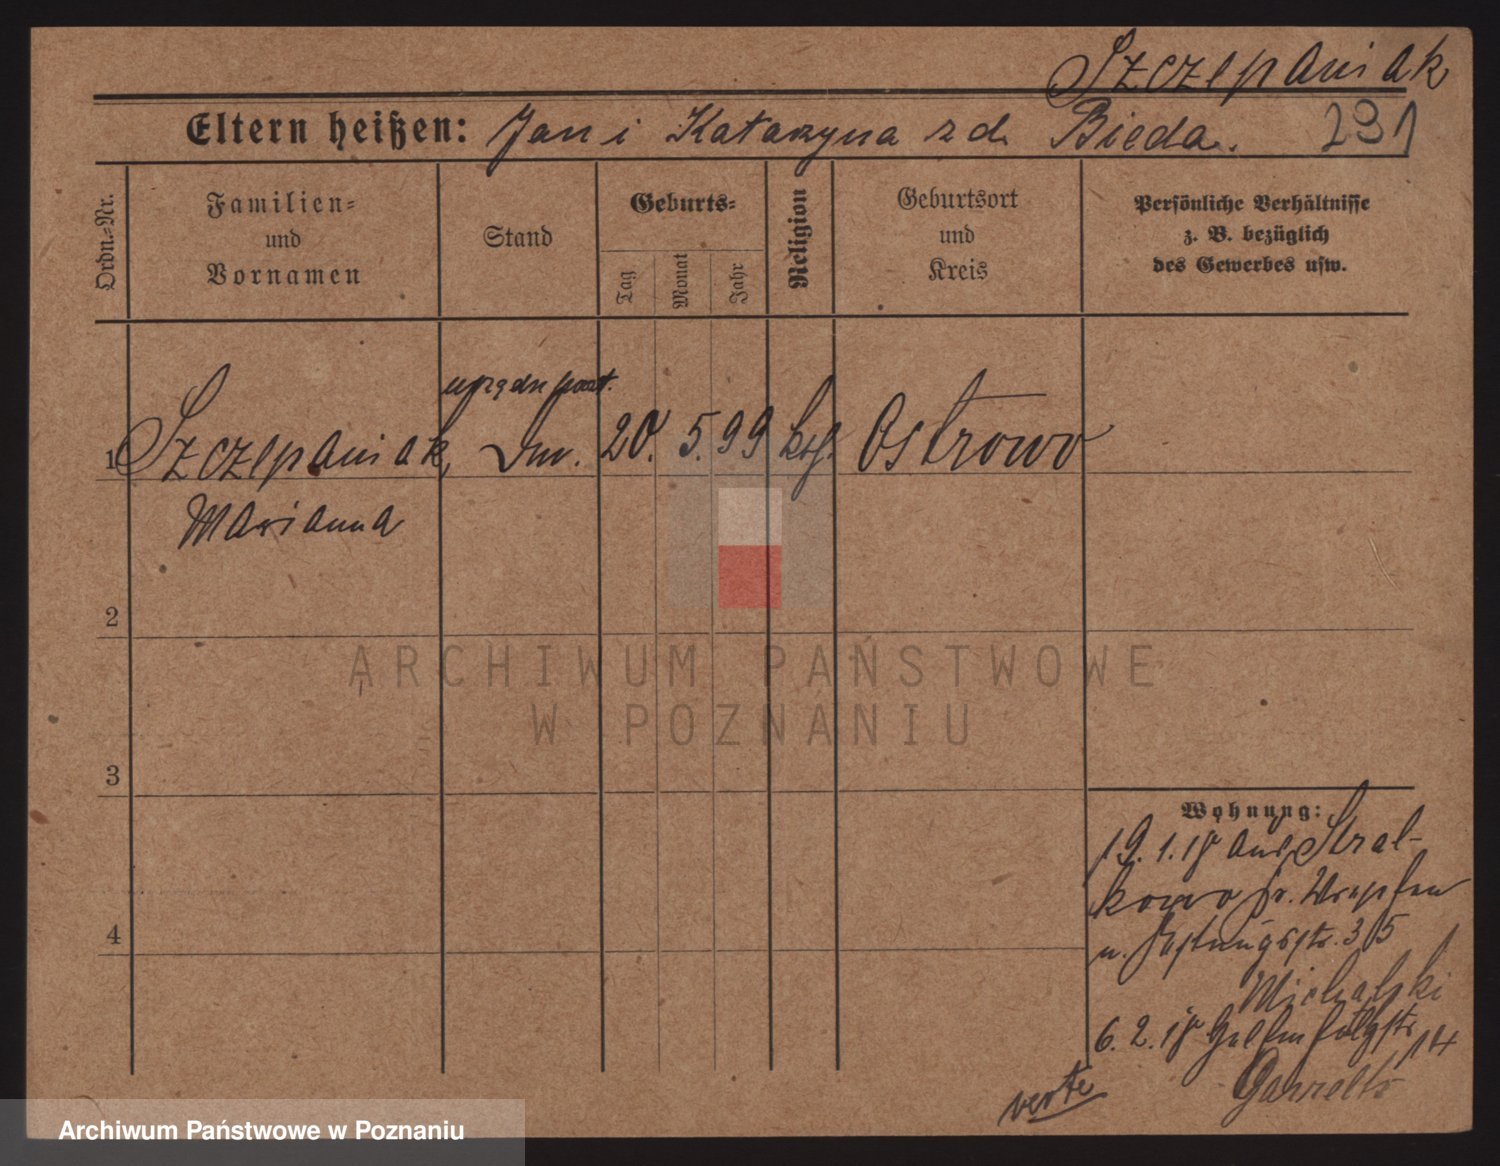 Szczepaniak
Eltern heißen: Jan i Katarzyna z d. Bieda.
231
Ordn.-Nr.
Familien-
und
Vornamen
Stand
Geburts-
Tag
Monat
Jahr
Religion
Geburtsort
und
Kreis
Persönliche Verhältnisse
z. B. bezüglich
des Gewerbes usw.
1 Szczepaniak, 20. 5. 99 ktl. Ostrowo
Marianna
2
3
4
Wohnung:
19.1.18 aus Stral-
kowo Kr. Wreschen
n. 35
Michalski
6.2.18 14
Garrelts
verte
ARCHIWUM PAŃSTWOWE
W POZNANIU
Archiwum Państwowe w Poznaniu